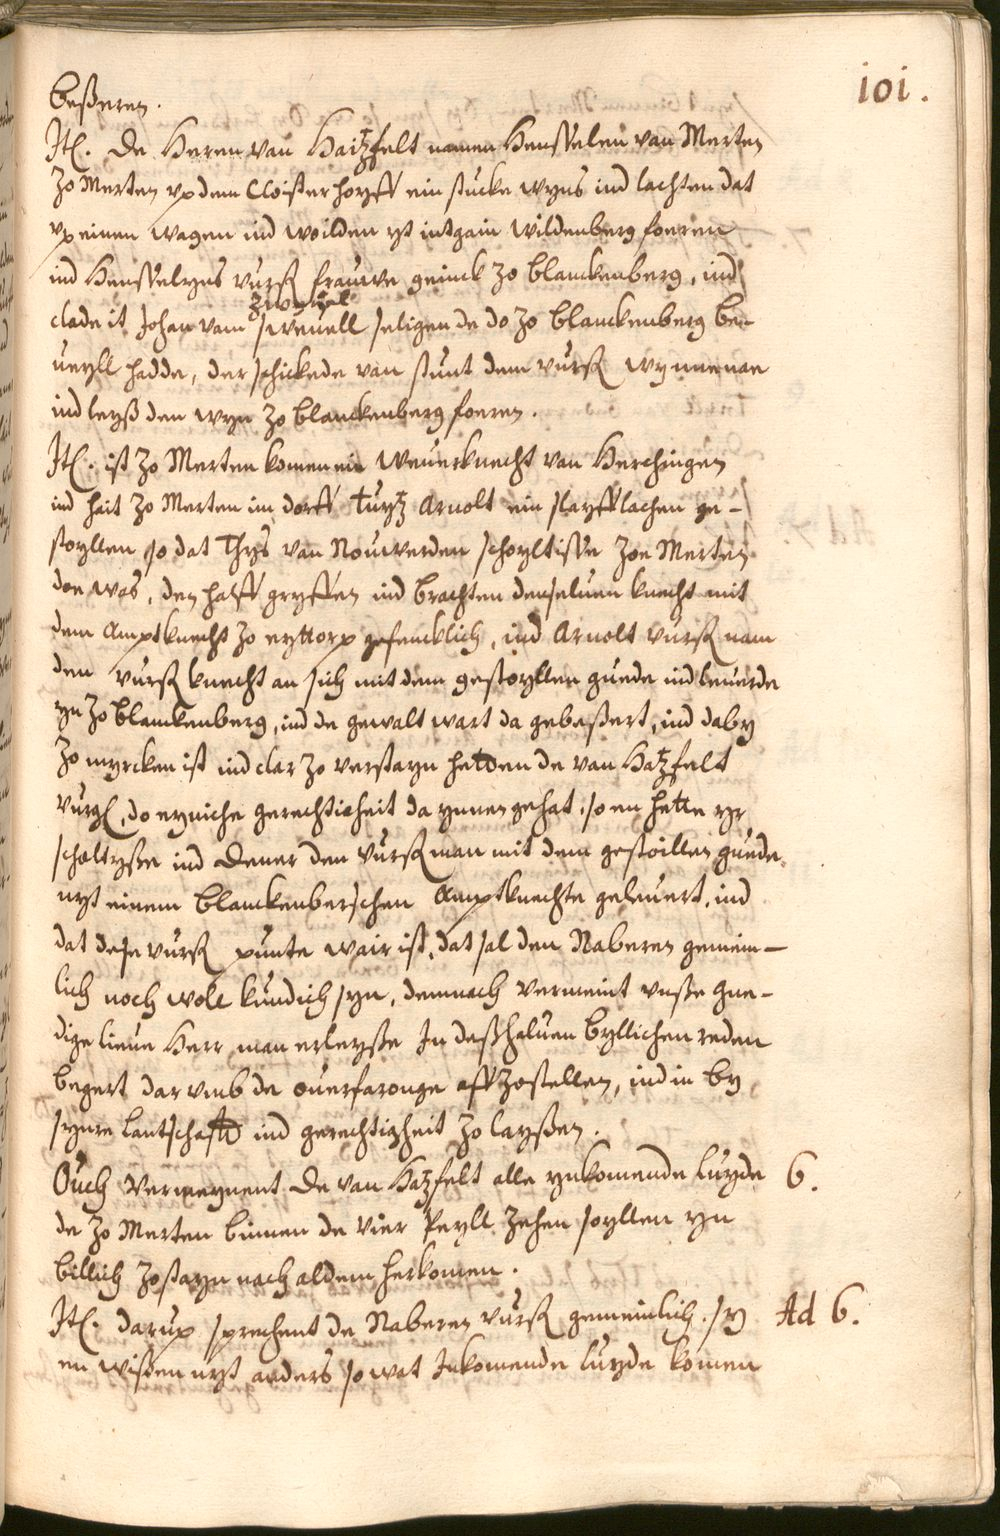 101.
beßeren.
Itē. De Heren van Haitzfelt namen Hensselen van Merten
zo Merten vp dem Cloister hoyff ein stucke wyns ind lachten dat
vp einen wagen ind woilden yt intgain wildenberg foeren
ind Hensselgyns vurß frauwe geinck zo blanckenberg, ind
zweiuel
clade it Johan vam sweuell seligen de do zo blanckenberg be-
ueyll hadde, der schickede van stunt dem vurß wynnenae
ind leyß den wyn zo blanckenberg foeren.
Itē. ist zo Merten komen ein weuerknecht van Herchingen
ind hait zo Merten im dorff Tuytz Arnolt ein slayfflachen ge-
stoyllen so dat Thys van Nouwerden schoyltisse zoe Merten
doe was, den halff gryffen ind brachten denseluen knecht mit
dem Amptknecht zo eyttorp gefencklich, ind Arnolt vurß nam
den vurß knecht an sich mit dem gestoyllen guede ind leuerde
yn zo blanckenberg, ind de gewalt wart da gebeßert, ind daby
zo myrcken ist ind clar zo verstayn hetden de van Hatzfelt
vurgß, do eyniche gerechticheit da ynnen gehat, so en hette yr
scholtyße ind dener den vurß man mit dem gestoillen guede
nyt einem blanckenberschen Amptknechte geleuert, ind
dat dese vurß punte wair ist, dat sal den Naberen gemein-
lich noch woll kundich syn, demnach vermeint vnße gne-
dige lieue Herr man erleyße In deßhaluen byllichen reden
begert dar vmb de ouerfaronge aff zostellen, ind in by
synre lantschafft ind gerechtigheit zo layßen.
Ouch vermeynent de van Hatzfelt alle ynkomende luyde 6.
de zo Merten binnen de vier Peyll zehen soyllen yn
billich zostayn nach aldem herkomen.
Itē. darup sprechent de Naberen vurß gemeinlich. sy Ad 6.
en wißen nyt anders so wat Inkomende luyde komen